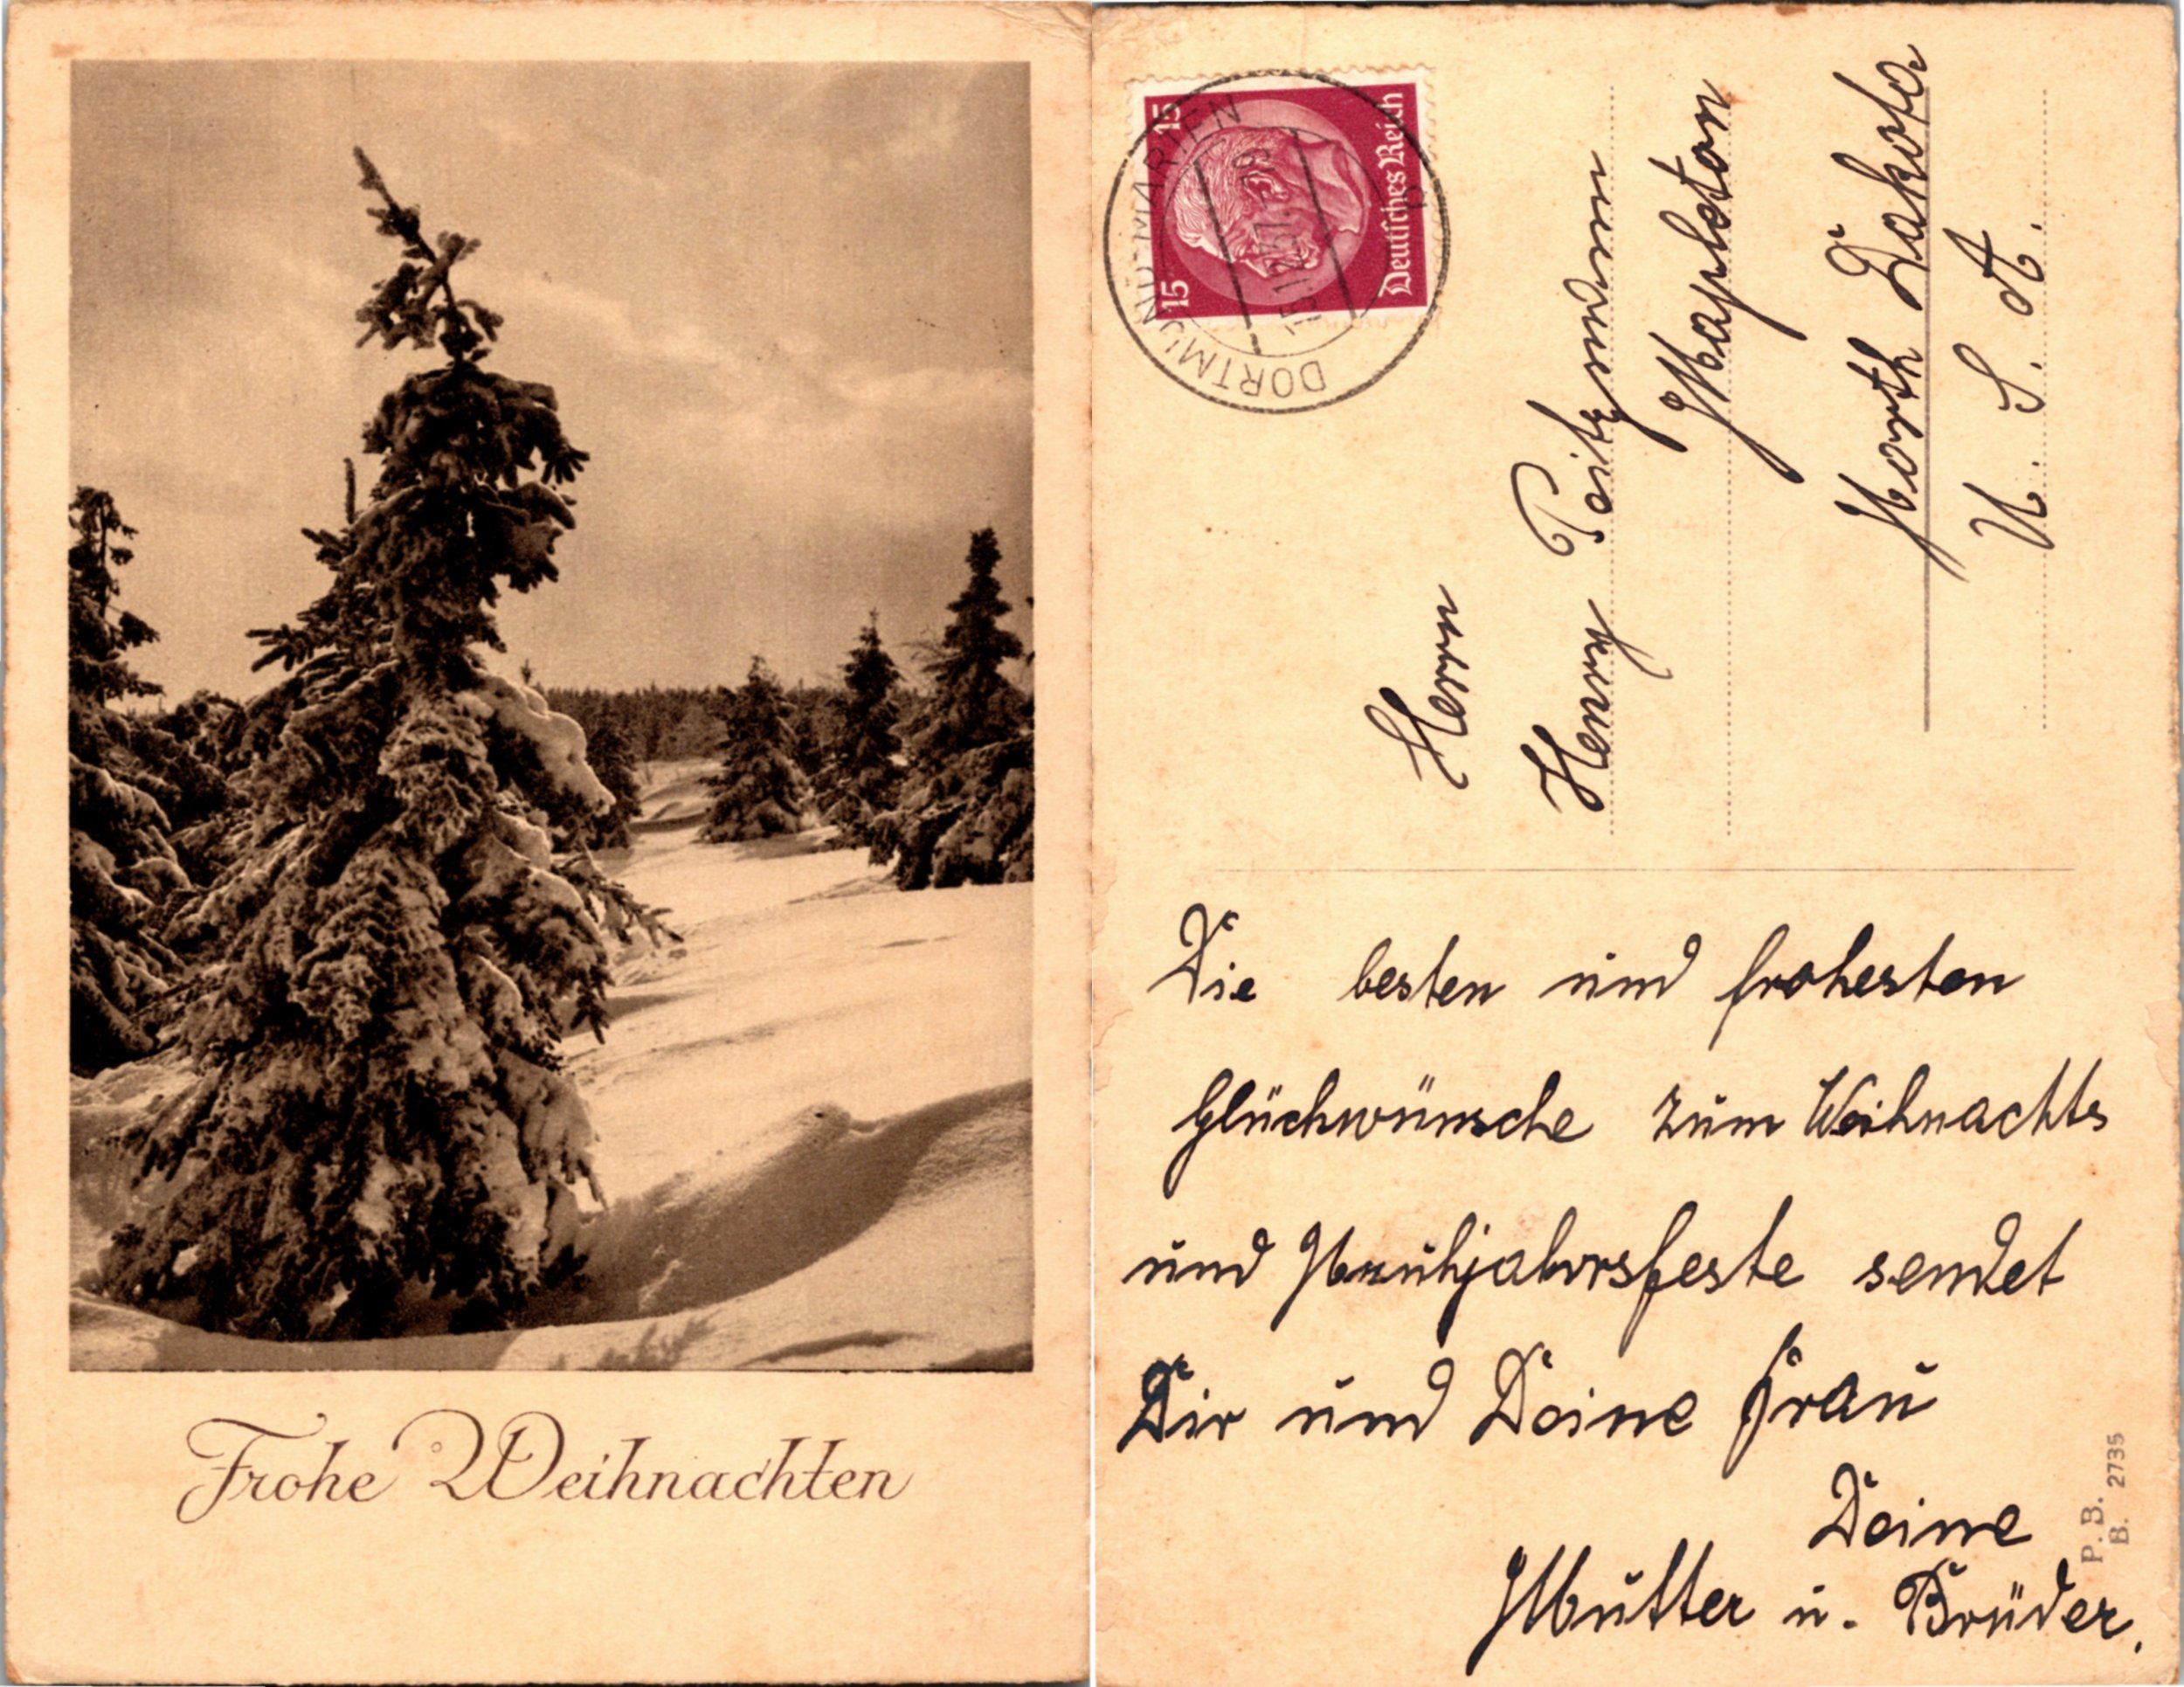 Frohe Weihnachten
15 15
Deutsches Reich
DORTMUND-MARTEN
15.12.37.
Herrn
Henry
Mapleton
North Dakota
U. S. A.
Die besten und frohesten
Glückwünsche zum Weihnachts
und Neuhjahrsfeste sendet
Dir und Deine Frau
Deine
Mutter u. Brüder.
P. B.
B. 2735